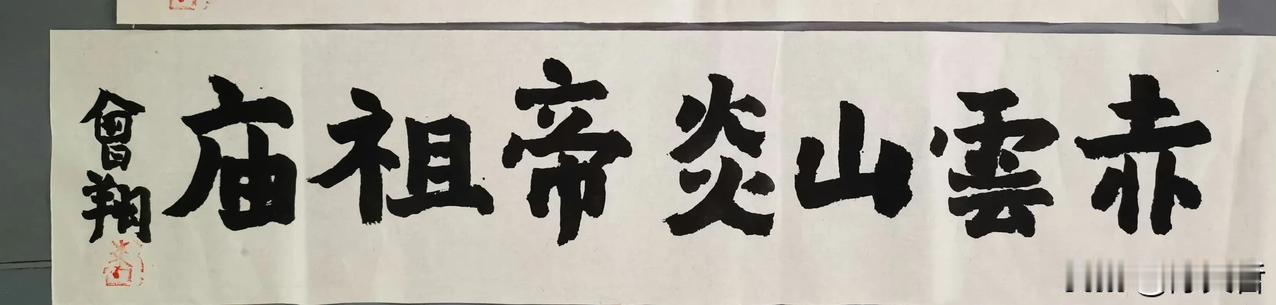 赤雲山炎帝祖庙
曾翔